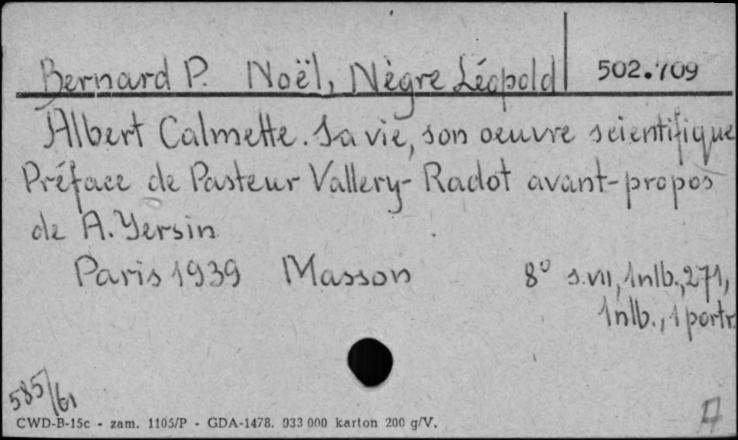 Bernard P. Noël, Nègre Léopold 502.709
Albert Calmette. Sa vie, son oeuvre scientifique
Préface de Pasteur Vallery-Radot avant-propos
de A. Yersin
Paris 1939 Masson 8° s.VII, 1nlb., 271,
1nlb., 1 portr.
585/61
CWD-B-15c - zam. 1105/P - GDA-1478. 933 000 karton 200 g/V.